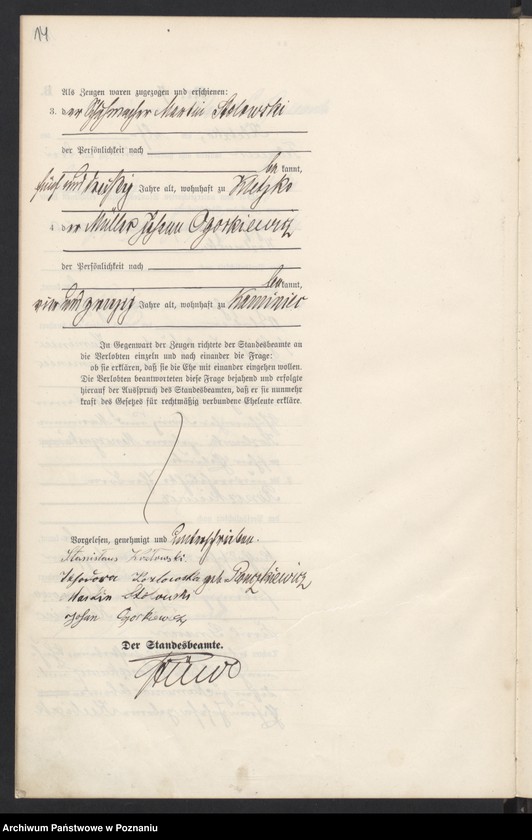 14
Als Zeugen waren zugezogen und erschienen:
3. der Schuhmacher Martin Stolowski
der Persönlichkeit nach
bekannt,
fünf und dreißig Jahre alt, wohnhaft zu Kletzko
4 der Müller Johann Ogorkiewicz
der Persönlichkeit nach
bekannt,
vier und zwanzig Jahre alt, wohnhaft zu Kaminiec
In Gegenwart der Zeugen richtete der Standesbeamte an
die Verlobten einzeln und nach einander die Frage:
ob sie erklären, daß sie die Ehe mit einander eingehen wollen.
Die Verlobten beantworteten diese Frage bejahend und erfolgte
hierauf der Ausspruch des Standesbeamten, daß er sie nunmehr
kraft des Gesetzes für rechtmäßig verbundene Eheleute erkläre.
Vorgelesen, genehmigt und unterschrieben.
Stanislaus Kozlowski
Teodora Kozlowska geb.
Martin Stolowski
Johan Ogorkiewicz
Der Standesbeamte.
Archiwum Państwowe w Poznaniu